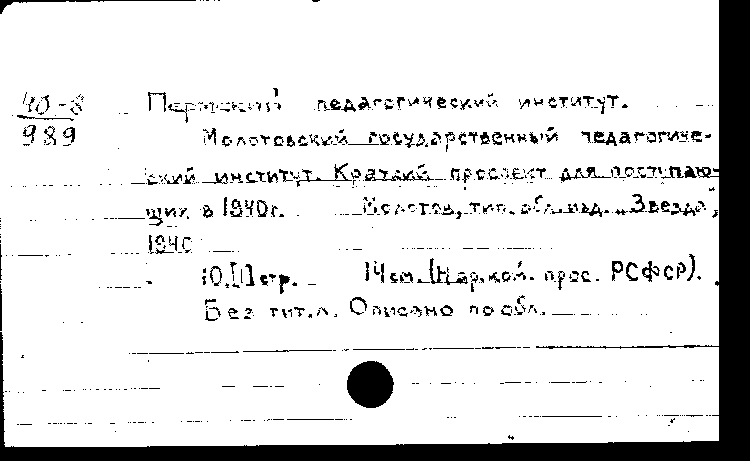 40-8
989
Пермский педагогический институт.
Молотовский государственный педагогиче-
ский институт. Краткий проспект для поступаю-
щих в 1940г. Молотов, тип. обл. изд. „Звезда",
1940
10.[1] стр. 14 см. (Нар. ком. прос. РСФСР).
Без тит. л. Описано по обл.